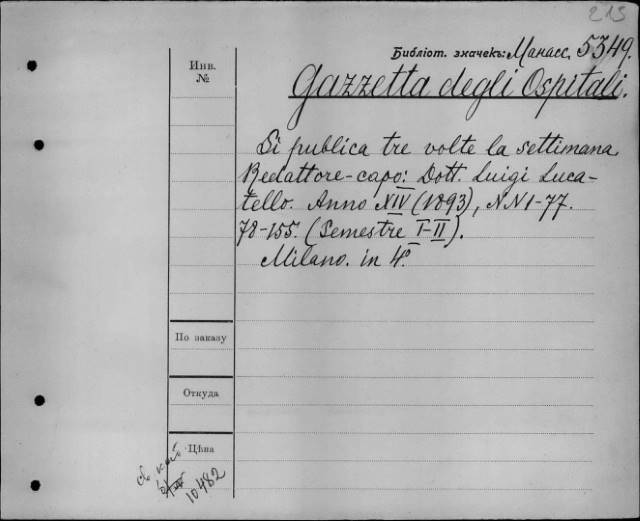 213
Библіот. значекъ: Манасс. 5349.
Инв.
№
Gazzetta degli Ospitali.
Si publica tre volte la settimana
Redattore-capo: Dott. Luigi Luca-
tello. Anno XIV (1893), NN 1-77.
78-155. (Semestre I-II).
Milano. in 4°
По заказу
Откуда
Цѣна
10482